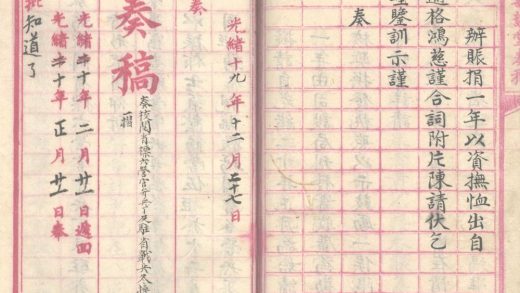 辦賑捐一年以資撫恤出自
逾格鴻慈謹合詞附片陳請伏乞
聖鑒訓示謹
奏
光緒十九年十二月二十七日
奏
奏稿
一摺
光緒二十年二月廿一日遞回
光緒二十年正月廿一日奉
批知道了